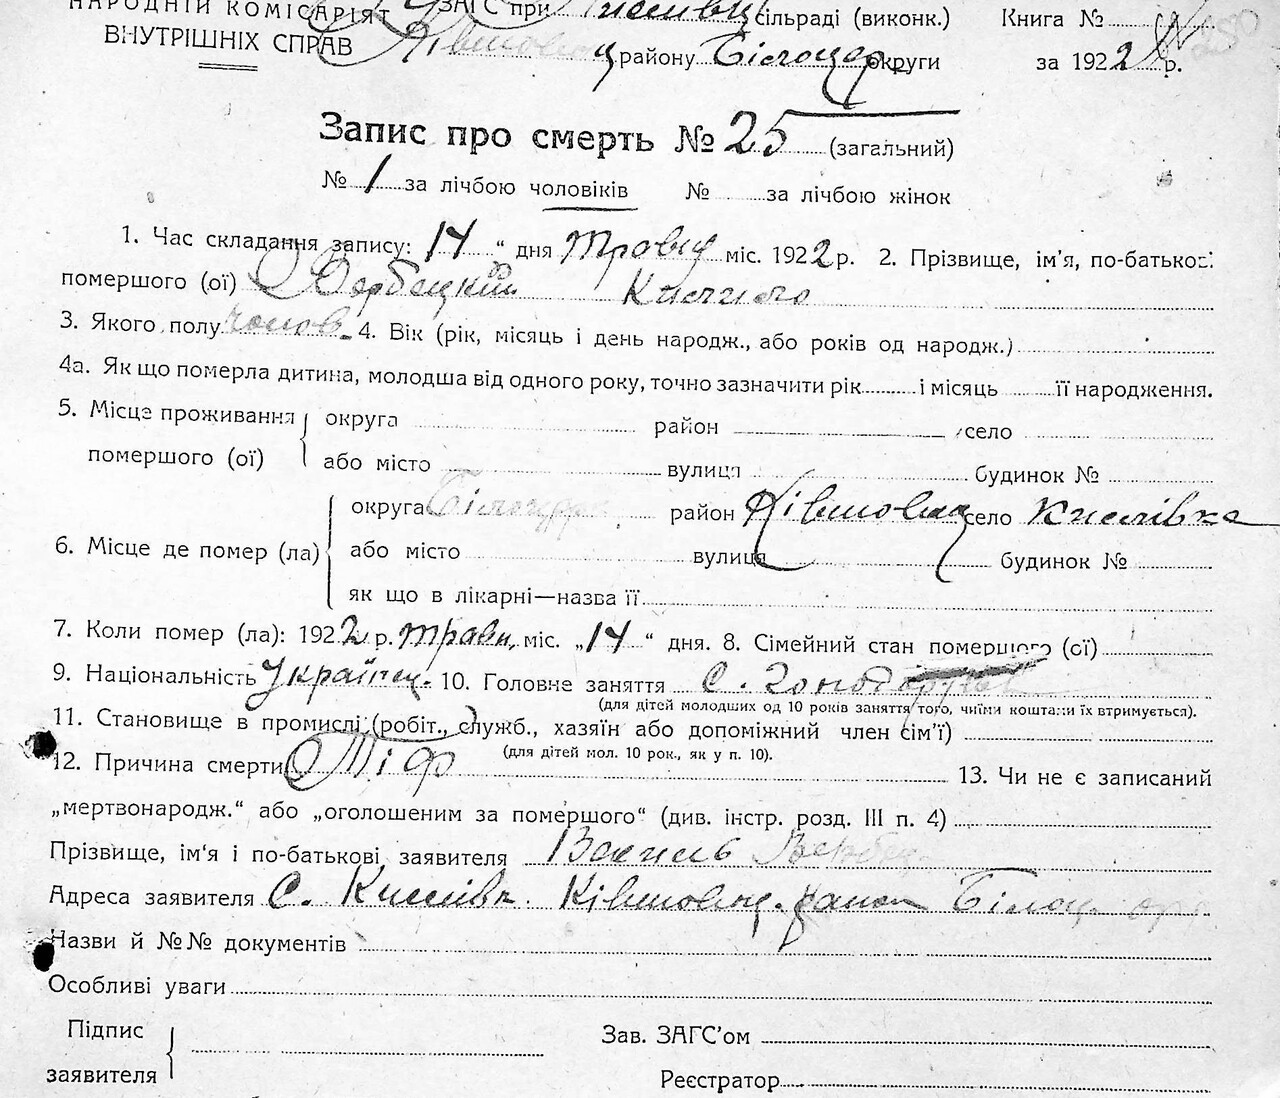 НАРОДНІЙ КОМІСАРІЯТ ЗАГС при Кислівці сільраді (виконк.) Книга №
ВНУТРІШНІХ СПРАВ Ківшовац району Білоцер округи за 1922 р.
Запис про смерть № 25 (загальний)
№ 1 за лічбою чоловіків № за лічбою жінок
1. Час складання запису: 14 “ дня травня міс. 1922 р. 2. Прізвище, ім'я, по-батькові
помершого (ої) Вербецкий
3. Якого полу чолов. 4. Вік (рік, місяць і день народж., або років од народж.)
4а. Як що померла дитина, молодша від одного року, точно зазначити рік і місяць її народження.
5. Місце проживання округа район село
помершого (ої) або місто вулиця будинок №
округа Білоцер район Ківшовац село Кислівка
6. Місце де помер (ла) або місто вулиця будинок №
як що в лікарні—назва її
7. Коли помер (ла): 1922 р. травн. міс. „14 “ дня. 8. Сімейний стан помершого (ої)
9. Національність Українец. 10. Головне заняття с.
(для дітей молодших од 10 років заняття того, чиїми коштами їх втримується).
11. Становище в промислі (робіт., служб., хазяїн або допоміжний член сім'ї)
(для дітей мол. 10 рок., як у п. 10).
12. Причина смерти Тіф 13. Чи не є записаний
„мертвонародж.“ або „оголошеним за помершого“ (див. інстр. розд. III п. 4)
Прізвище, ім'я і по-батькові заявителя Василь Вербец
Адреса заявителя С. Кислівк. Ківшовац. район Білоц. окр
Назви й №№ документів
Особливі уваги
Підпис Зав. ЗАГС'ом
заявителя Реєстратор